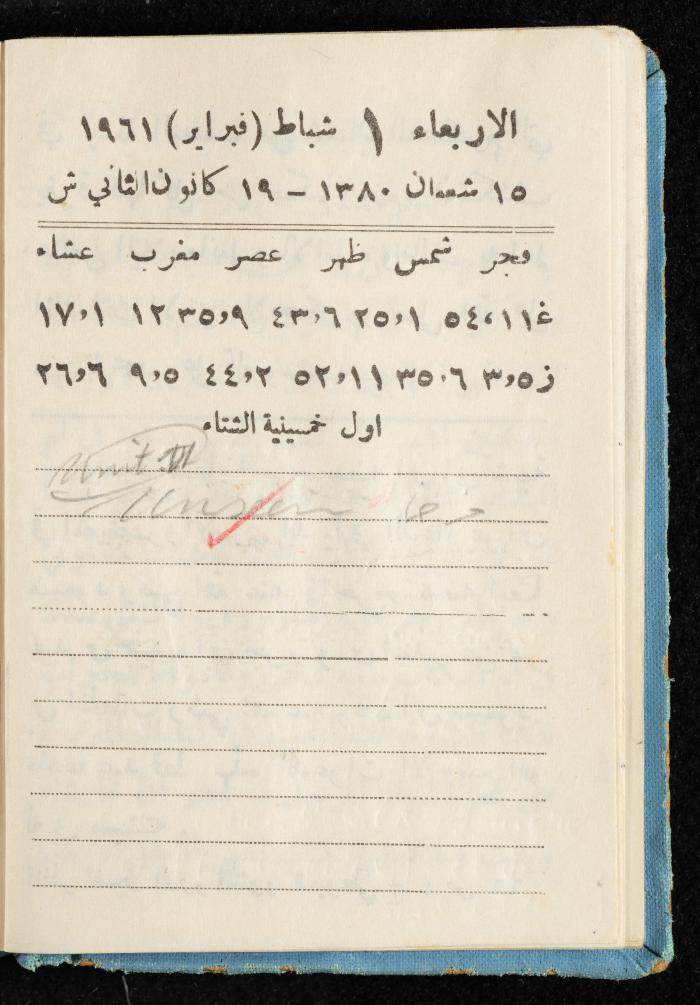 الاربعاء ١ شباط (فبراير) ١٩٦١
١٥ شعبان ١٣٨٠ – ١٩ كانون الثاني ش
فجر شمس ظهر عصر مغرب عشاء
غ ١١،٥٤ ١،٢٥ ٦،٤٣ ٩،٣٥ ١٢ ١،١٧
ز ٥،٣ ٦،٣٥ ١١،٥٢ ٢،٤٤ ٥،٩ ٦،٢٦
اول خمسينية الشتاء
Unit VI